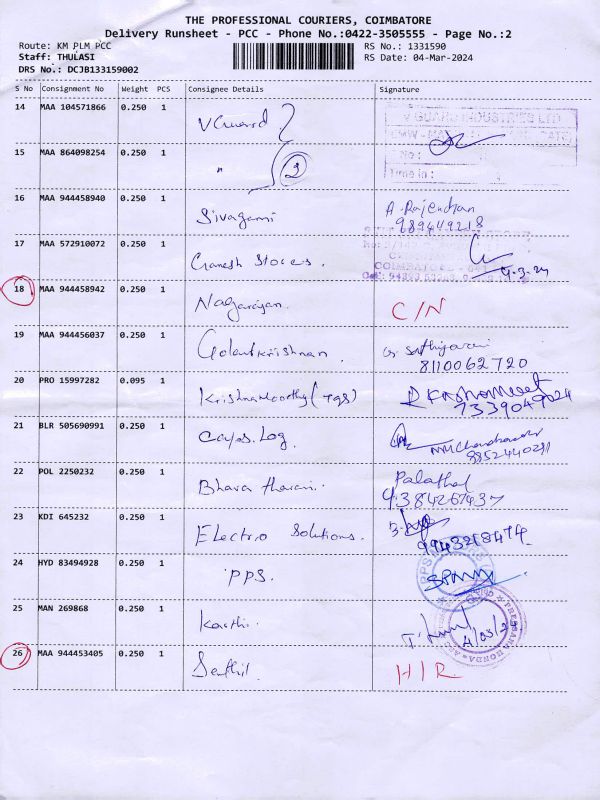 THE PROFESSIONAL COURIERS, COIMBATORE
Delivery Runsheet - PCC - Phone No.:0422-3505555 - Page No.:2
Route: KM PLM PCC
RS No.: 1331590
Staff: THULASI
RS Date: 04-Mar-2024
DRS No.: DCJB133159002
S No Consignment No Weight PCS Consignee Details Signature
14 MAA 104571866 0.250 1 VGuard
V GUARD INDUSTRIES LTD
15 MAA 864098254 0.250 1 " 2
Time in :
16 MAA 944458940 0.250 1 Sivagami A. Rajendran
989449218
17 MAA 572910072 0.250 1 Ganesh Stores.
4-3-24
18 MAA 944458942 0.250 1 Nagarajan. C/N
19 MAA 944456037 0.250 1
8110062720
20 PRO 15997282 0.095 1 Krishnamoorthy (TGS)
7339049024
21 BLR 505690991 0.250 1 Log.
22 POL 2250232 0.250 1 Bharathi
9384267437
23 KDI 645232 0.250 1 Electro Solutions.
9943218474
24 HYD 83494928 0.250 1 PPS.
25 MAN 269868 0.250 1
4/03/24
26 MAA 944453405 0.250 1 Senthil H/R